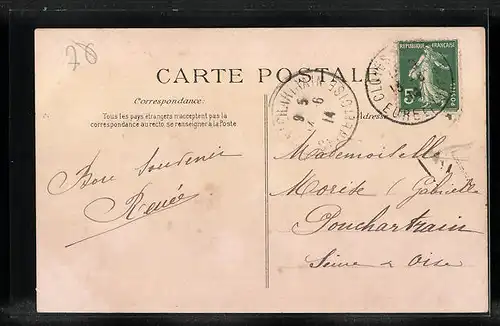 76
CARTE POSTALE
REPUBLIQUE FRANÇAISE
5c
POSTES
EURE
9 5
6
14
Correspondance:
Adresse
Tous les pays étrangers n'acceptent pas la
correspondance au recto, se renseigner à la Poste.
Bon Souvenir
Renée
Mademoiselle
Gabrielle
Pontchartrain
Seine & Oise